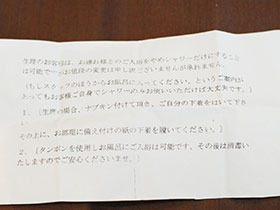 生理のお客様は、お連れ様とのご入浴をやめシャワーだけにすること
は可能です お値段の変更は申し訳ございませんが承れません。
(もしスタッフのほうからお風呂に入ってください。というご案内が
あってもお客様ご自身でシャワーのみお使いいただけば大丈夫です。)
1.(生理の場合、ナプキン付けて頂き、ご自分の下着をはいて下さい
その上に、お部屋に備え付けの紙の下着を履いてください。)
2.(タンポンを使用しお風呂にご入浴は可能です、その後は消毒い
たしますのでご安心くださいませ。)